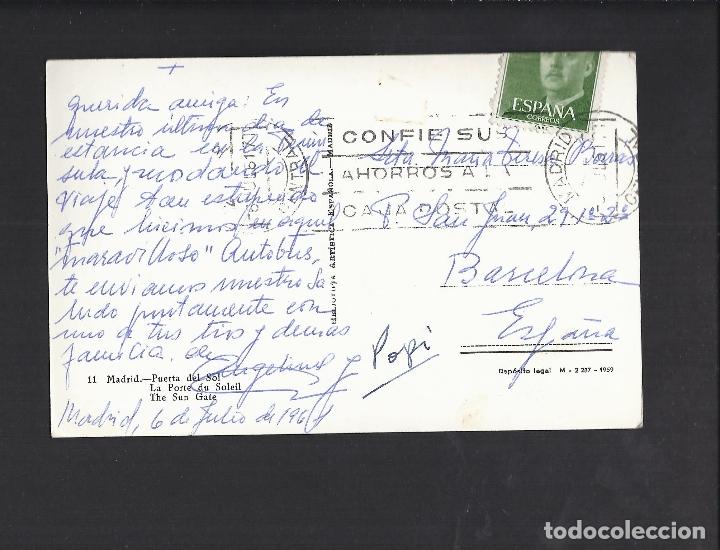 +
Querida amiga: En
nuestro último dia de
estancia en la penin
sula y recordando el
viaje tan estupendo
que hicimos en aquel
"maravilloso" Autobus,
te enviamos nuestro Sa
ludo juntamente con
uno de tus tios y demas
familia. de
Angelines y Popi
11 Madrid.—Puerta del Sol
La Porte du Soleil
The Sun Gate
Madrid, 6 de Julio de 196
ARTÍSTICA ESPAÑOLA - MADRID
ESPAÑA
CORREOS
CONFIE SUS
AHORROS A LA
CAJA POSTAL
MADRID
Srta. Maria Teresa
P. San Juan, 29, 1º 2ª
Barcelona
España
Depósito legal M - 2 237 - 1959
todocoleccion.net